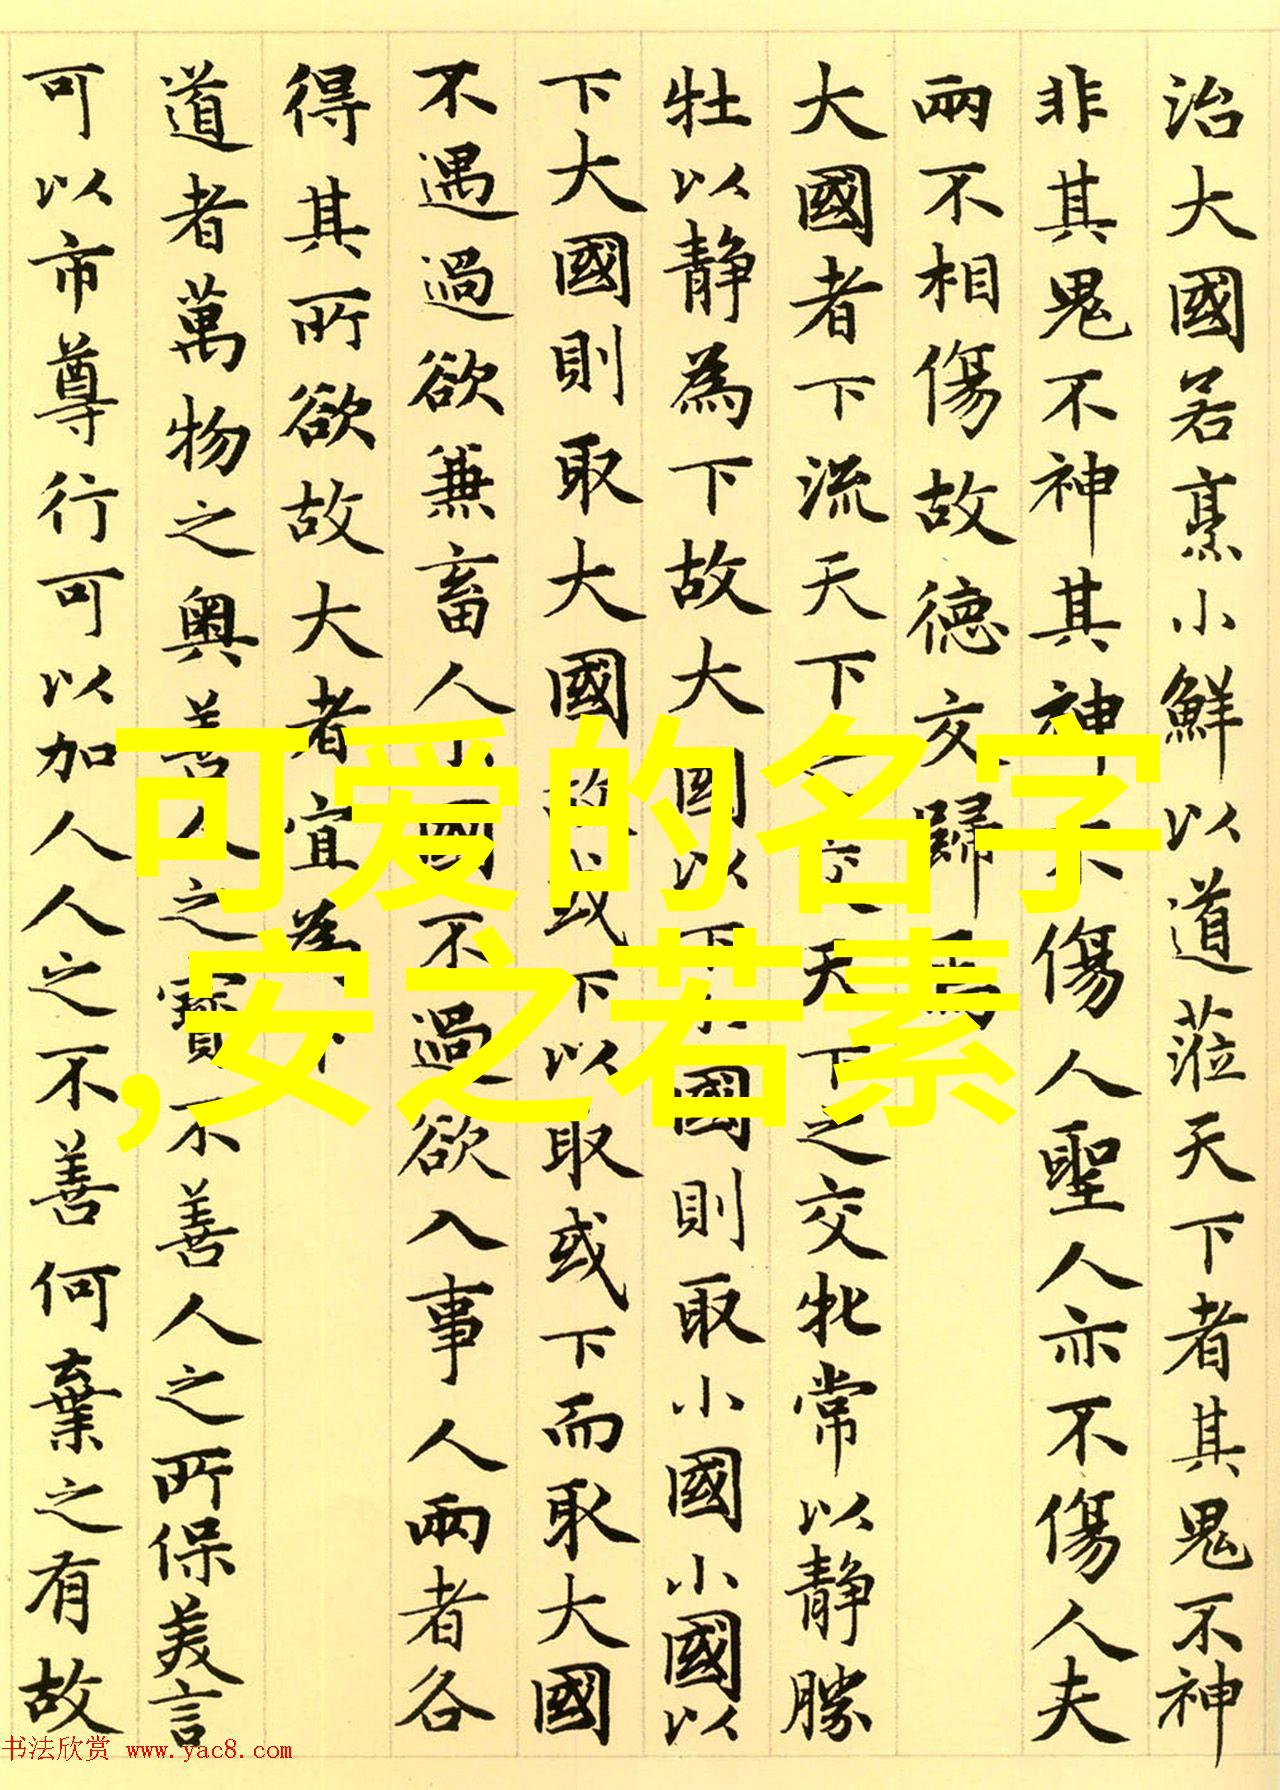 治大國若烹小鮮以道蒞天下者其鬼不神
非其鬼不神其神不傷人聖人亦不傷人夫
兩不相傷故德交歸焉
大國者下流天下之交天下之交牝常以靜勝
牡以靜為下故大國以下小國則取小國小國以
下大國則取大國故或下以取或下而取大國
不遇過欲兼畜人小國不過欲入事人兩者各
得其所欲故大者宜為下
道者萬物之奧善人之寶不善人之所保美言
可以市尊行可以加人人之不善何棄之有故
可爱的名字
,安之若素
书法欣赏 www.yac8.com